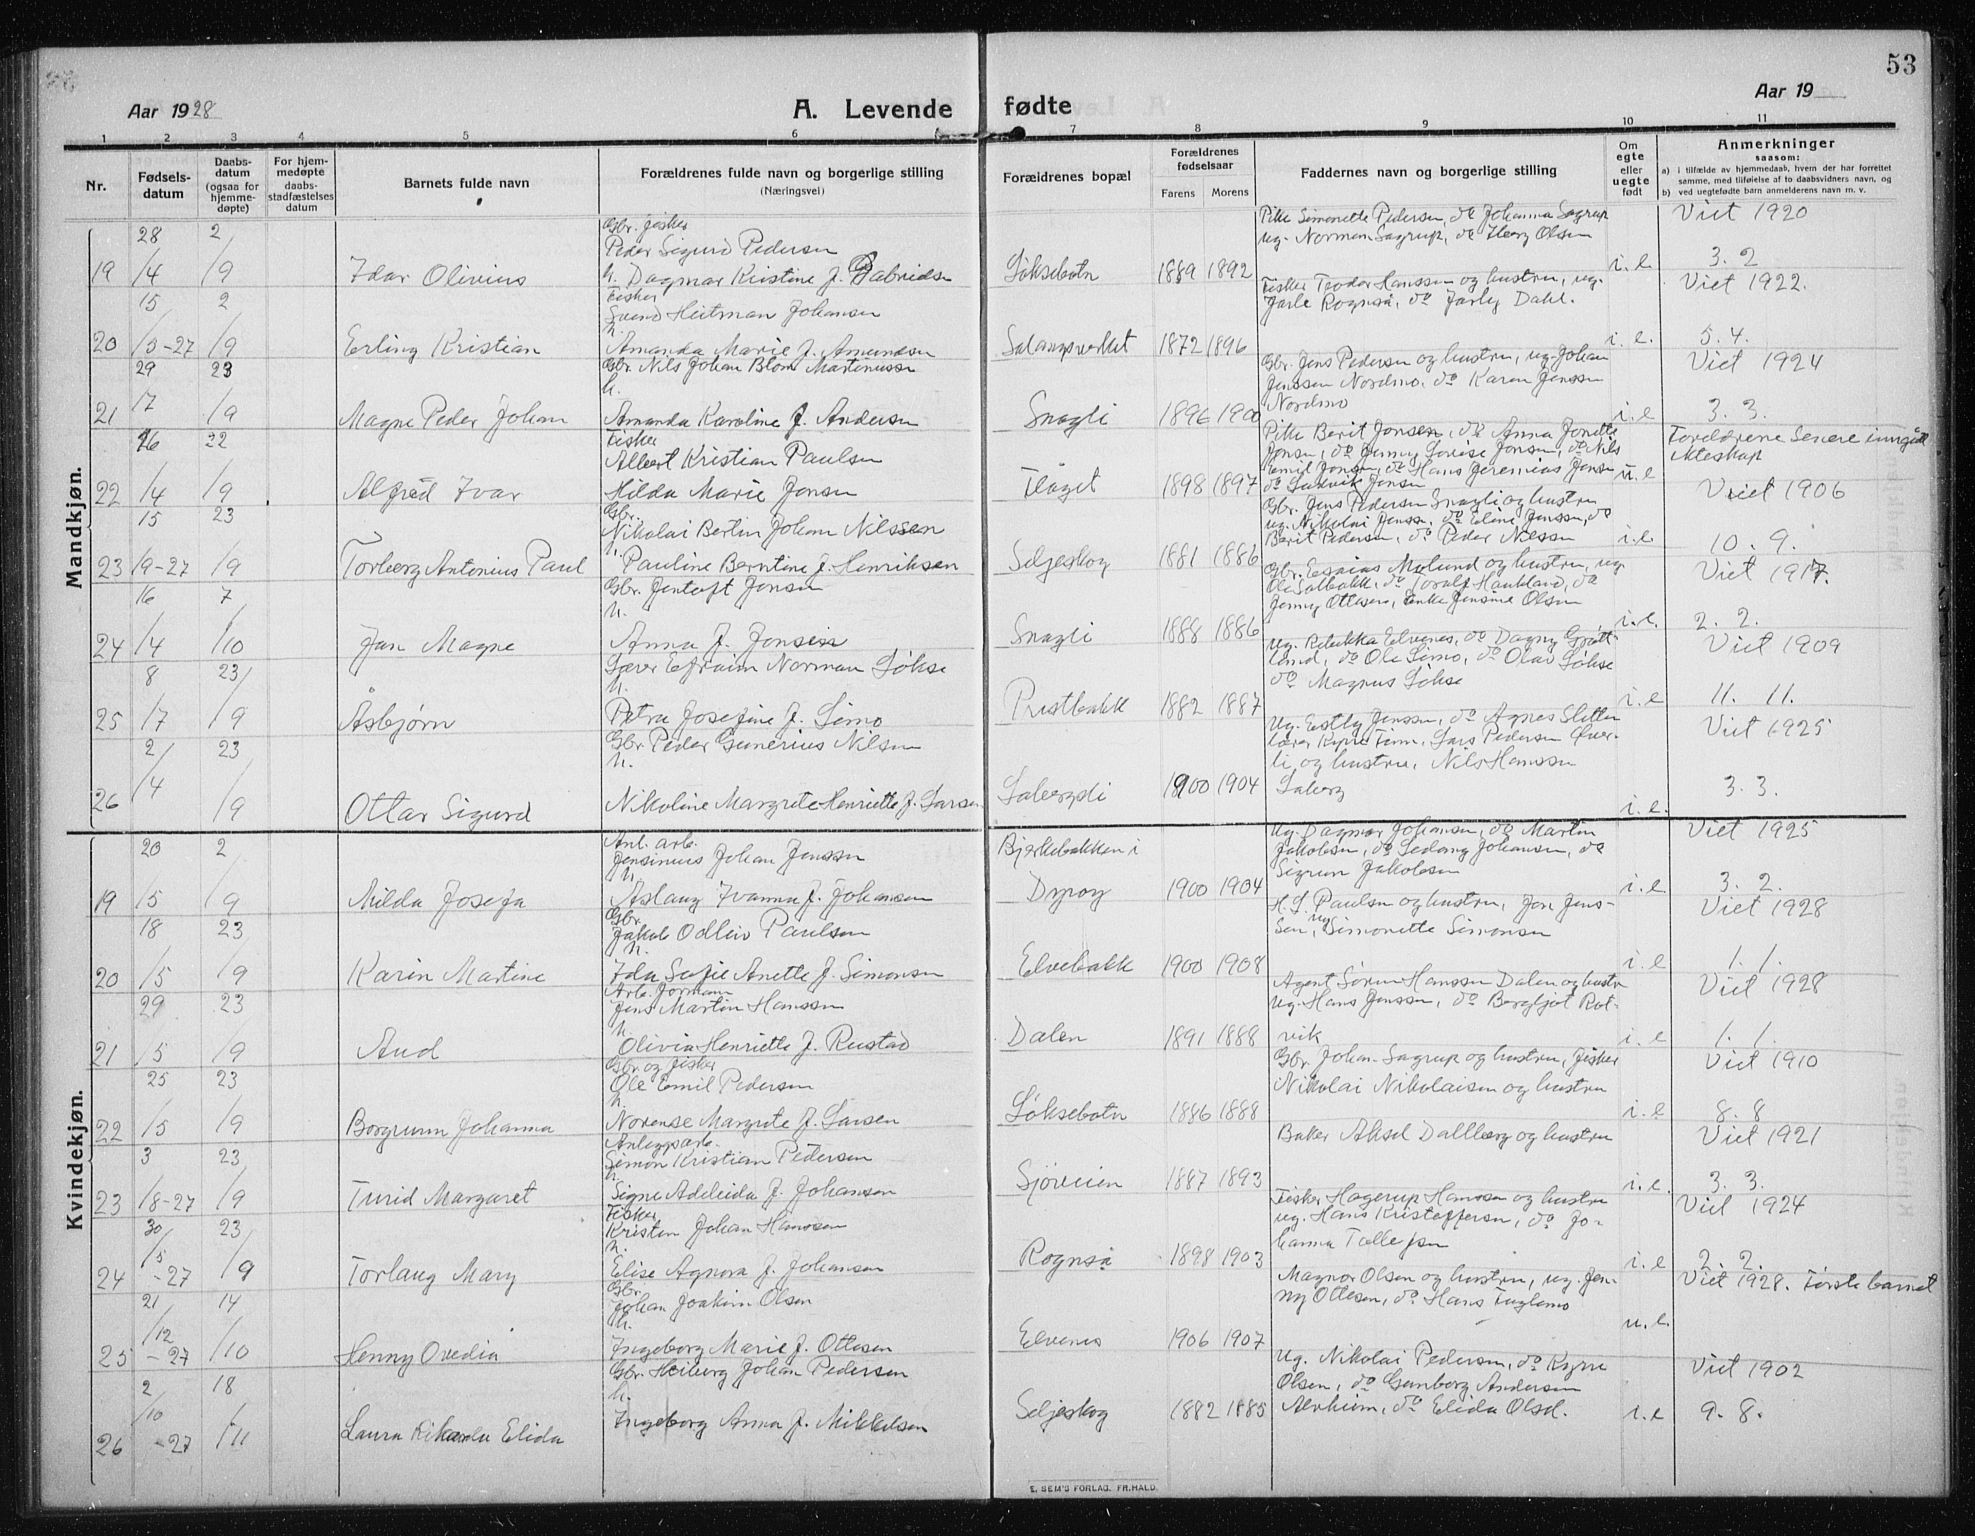 53
Aar 1928
A. Levende fødte
Aar 19
1 2 3 4 5 6 7 8 9 10 11
Nr.
Fødsels-datum
Daabs-datum (ogsaa for hjemme-døpte)
For hjem-medøpte daabs-stadfæstelses datum
Barnets fulde navn
Forældrenes fulde navn og borgerlige stilling
(Næringsvei)
Forældrenes bopæl
Forældrenes fødselsaar
Farens Morens
Faddernes navn og borgerlige stilling
Om egte eller uegte født
Anmerkninger
saasom:
a) i tilfælde av hjemmedaab, hvem der har forrettet samme, med tilføielse af to daabsvidners navn, og
b) ved uegtefødte barn anmelderens navn m. v.
Mandkjøn.
19 28/4 2/9 Idar Olivius
Gbr. fisker
Peder Sigurd Pedersen
h. Dagmar Kristine f. Gabrielsen
Løksebotn 1889 1892
Pike Simonette Pedersen, do Johanna Sagrup
ug. Norman Sagrup, do Herg Olsen
i. e.
Viet 1920
3. 2
20 15/5-27 2/9 Erling Kristian
Fisker
Svend Heitman Johansen
h.
Amanda Marie f. Amundsen
Salangsverket 1872 1896
Fisker Teodor Hanssen og hustru, ug.
Jarle Rognså, do Jarly Dahl.
i. e.
Viet 1922.
5. 4.
21 29/7 23/9 Magne Peder Johan
Gbr. Nils Johan Blom Martinussen
h.
Amanda Karoline f. Andersen
Snagli 1896 1900
Gbr. Jens Pedersen og hustru, ug. Johan
Jenssen Nordmo, do Karen Jenssen
Nordmo
i. e
Viet 1924
3. 3.
22 26/4 22/9 Alfred Ivar
Fisker
Albert Kristian Paulsen
Hilda Marie Jensen
Flåget 1898 1897
Pike Berit Jonsen, do Anna
Jonsen, do Jenny Lovise Jonsen, do Nils
Emil Jonsen, do Hans Jeremias Jonsen
do Ludvik Jonsen
u. e
Foreldrene senere inngått
ekteskap
23 15/9-27 23/9 Torberg Antonius Paul
Gbr.
Nikolai Bertin Johan Nilssen
h. Pauline Berntine f. Henriksen
Seljeskog 1881 1886
Gbr. Jens Pedersen Snagli og hustru
ug. Nikolai Jenssen, do Eline Jenssen, do
Berit Pedersen, do Peder Nilssen
i. e.
Viet 1906
10. 9.
24 16/4 7/10 Jan Magne
Gbr. Jentoft Jensen
h.
Anna f. Jonsen
Snagli 1888 1886
Gbr. Esaias Molund og hustru, ug.
Ole Salbakk, do Toralf Haukland, do
Jenny Ottesen, Enke Jensine Olsen
i. e.
Viet 1917.
2. 2.
25 8/7 23/9 Åsbjørn
Lærer Efraim Norman Løkse
h.
Petra Josefine f. Simo
Prestbakk 1882 1887
ug. Rebekka Elvenes, do Dagny
do Ole Simo, do Olav Løkse
do Magnus Løkse
i. e
Viet 1909
11. 11.
26 2/4 23/9 Ottar Sigurd
Gbr. Peder Gunerius Nilsen
h.
Nikoline Margrete Henriette f. Larsen
Labergsli 1900 1904
ug. Estly Jenssen, do Agnes Sletten
lærer Kyrre Finn, Lars Pedersen Øver-
li og hustru, Nils Hanssen
Laberg
i. e.
Viet 1925
3. 3.
Kvindekjøn.
19 20/5 2/9 Milda Josefa
Anl. arb.
Jensinius Johan Jenssen
h.
Aslaug Ivanna f. Johansen
Bjerkebakken i
Dyrøy 1900 1904
ug. Dagmar Johansen, do Martin
Jakobsen, do Solaug Johansen, do
Sigrun Jakobsen
i. e
Viet 1925
3. 2.
20 18/5 23/9 Karin Martine
Gbr.
Jakob Odleiv Paulsen
h.
Ida Sofie Anette f. Simonsen
Elvebakk 1900 1908
H. L. Paulsen og hustru, Jon Jens-
sen, ug Simonette Simonsen
i. e
Viet 1928
1. 1.
21 29/5 23/9 Aud
Arb. formann
Jens Martin Hanssen
h.
Olivia Henriette f. Rustad
Dalen 1891 1888
Agent Søren Hanssen Dalen og hustru
ug. Hans Jenssen, do Bergljot Rot-
vik
i. e
Viet 1928
1. 1.
22 25/5 23/9 Borgrunn Johanna
Gbr og fisker
Ole Emil Pedersen
h.
Norense Margrete f. Larsen
Løksebotn 1886 1888
Gbr. Johan Sagrup og hustru, fisker
Nikolai Nikolaisen og hustru
i. e
Viet 1910
8. 8
23 3/8-27 23/9 Turid Margaret
Anleggsarb.
Simon Kristian Pedersen
h.
Signe Adeleida f. Johansen
Sjøveien 1887 1893
Baker Aksel Dallberg og hustru
i. e.
Viet 1921
3. 3.
24 30/5-27 23/9 Torlaug Mary
Fisker
Kristen Johan Hanssen
h.
Elise Agnora f. Johansen
Rognså 1898 1903
Fisker Hagerup Hanssen og hustru
ug. Hans Kristoffersen, do Jo-
hanna Tollefsen
i. e
Viet 1924
2. 2.
25 21/12-27 14/10 Henny Ovedia
Gbr.
Johan Joakim Olsen
h.
Ingeborg Marie f. Ottesen
Elvenes 1906 1907
Magnor Olsen og hustru, ug. Jen-
ny Ottesen, do Hans Fuglemo
u. e.
Viet 1928. Første barnet
26 2/10-27 18/11 Laura Rikarda Elida
Gbr. Heiberg Johan Pedersen
h.
Ingeborg Anna f. Mikkelsen
Seljeskog 1882 1885
ug. Nikolai Pedersen, do Kyrre
Olsen, do Gunborg Andersen
do Elida Olsd.
i. e
Viet 1902
9. 8.
E. SEM'S FORLAG. FR.HALD.